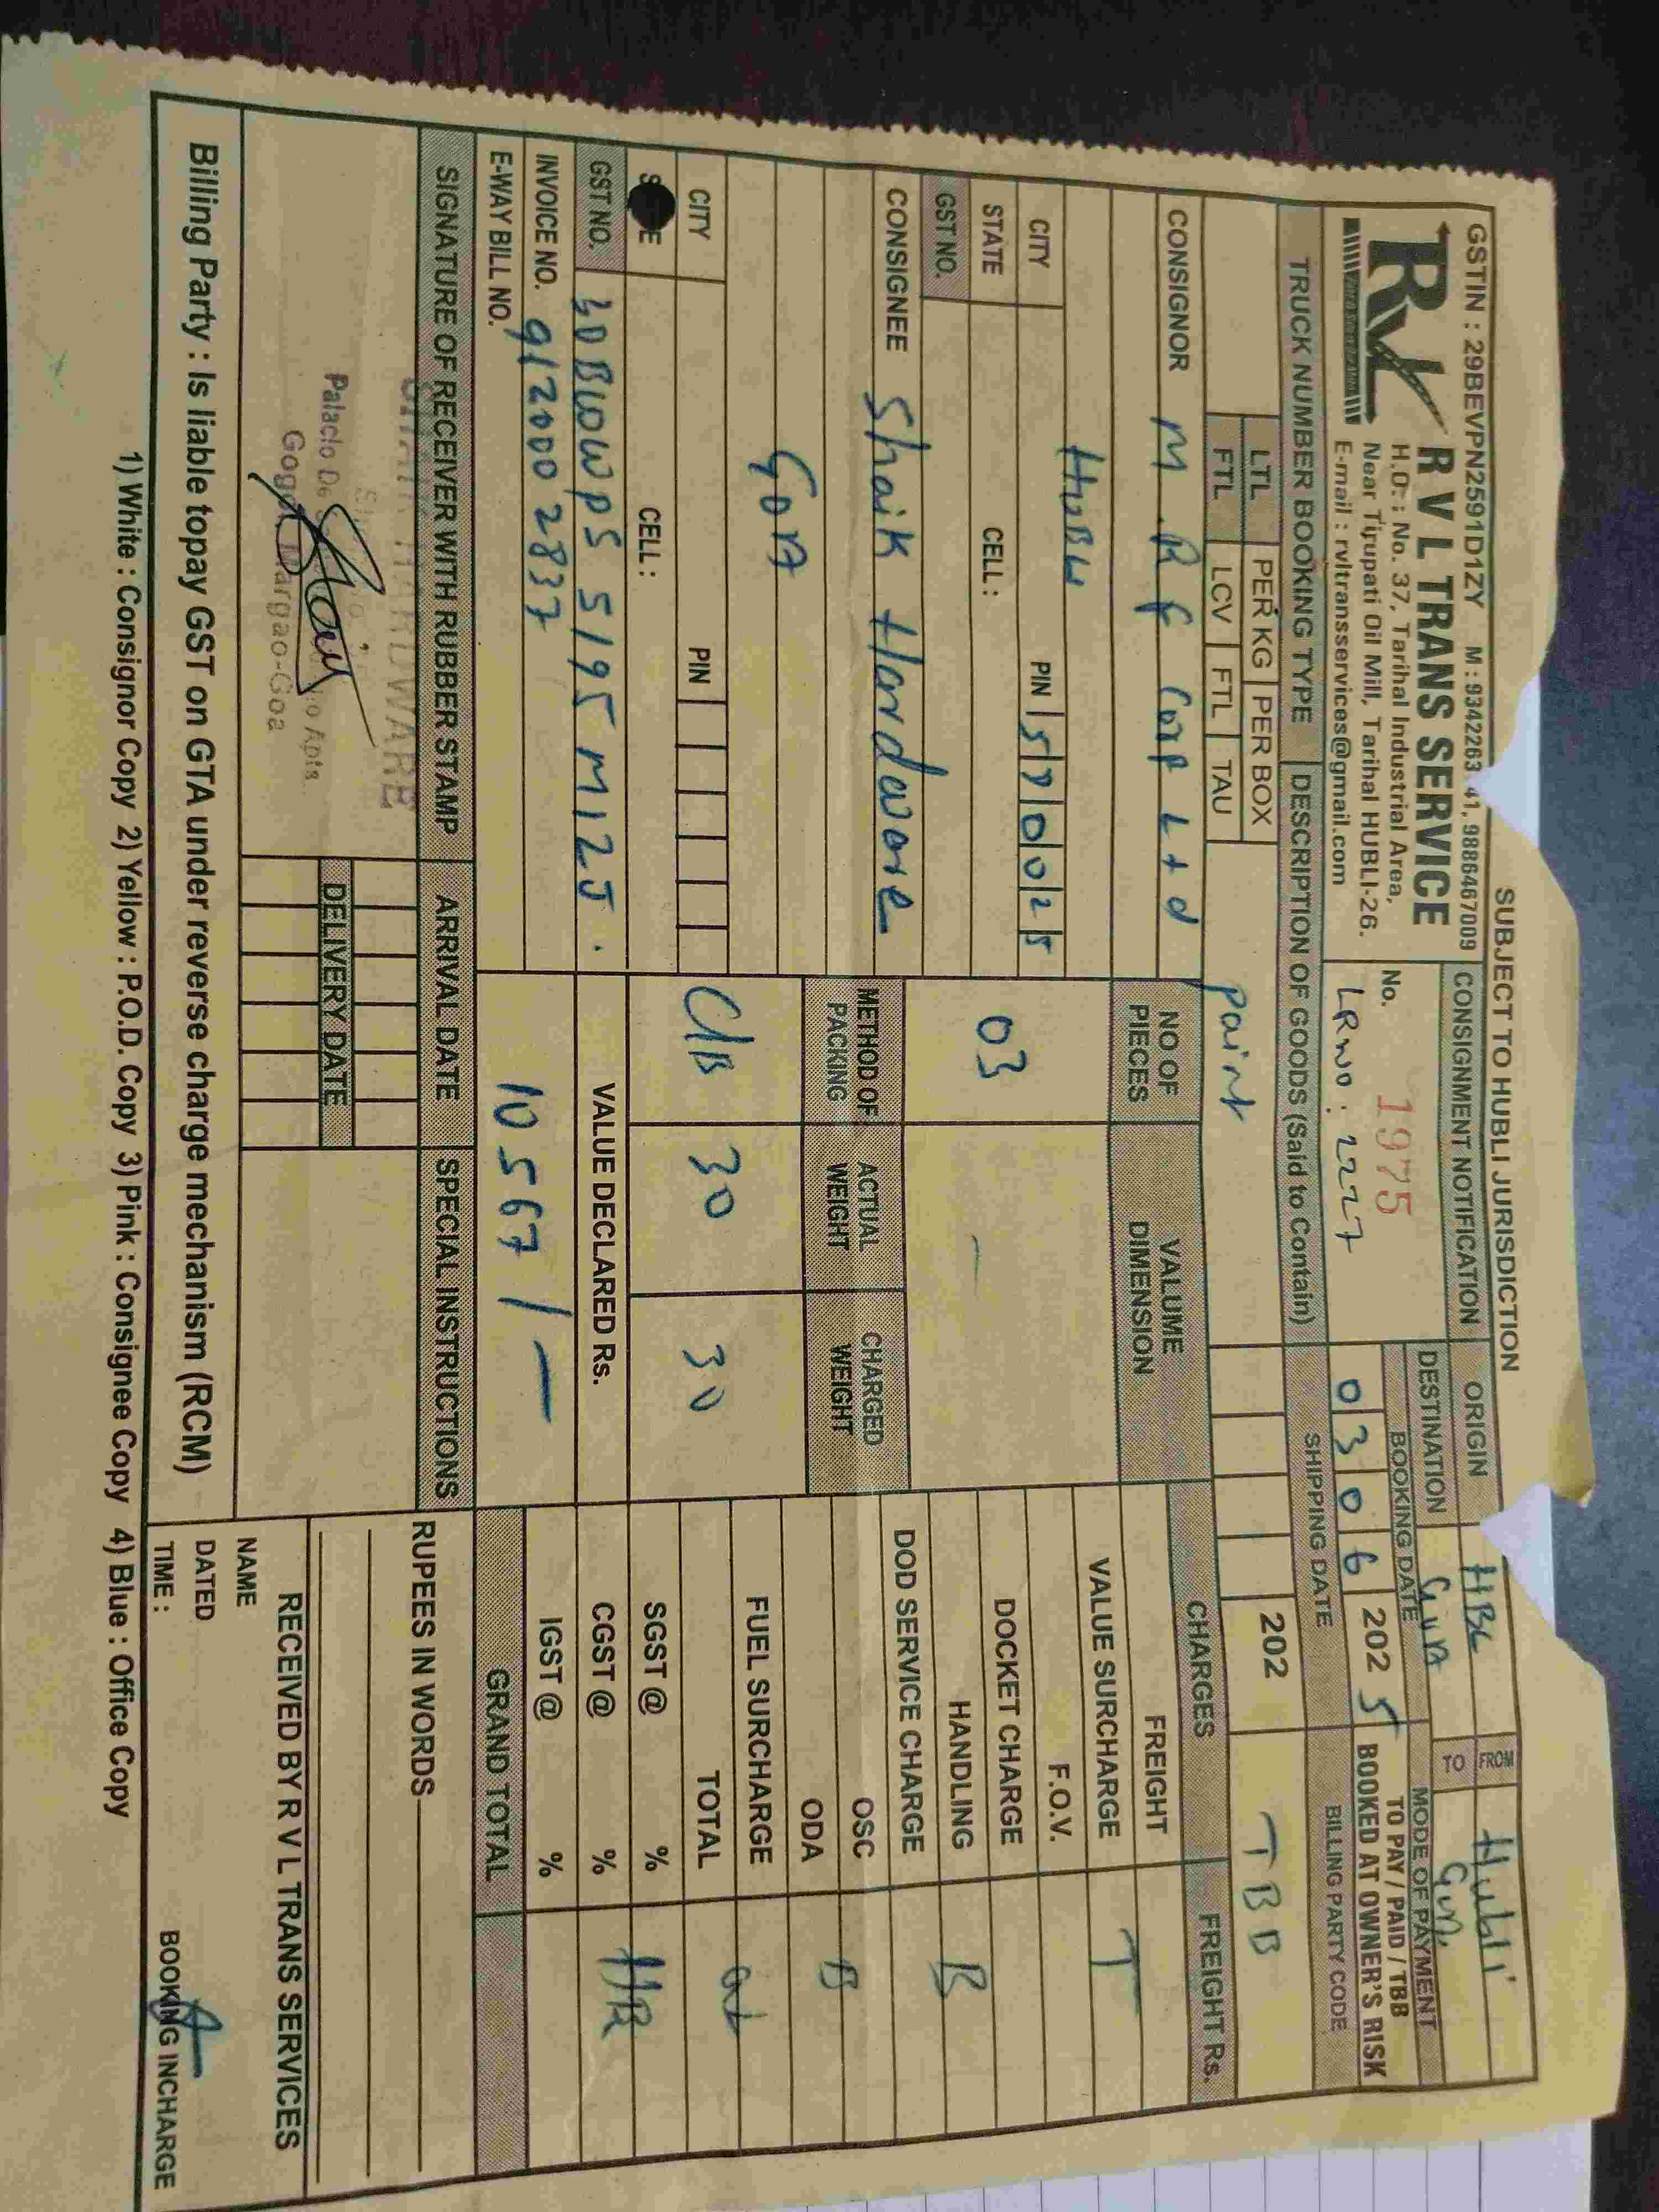 SUBJECT TO HUBLI JURISDICTION
GSTIN : 29BEVPN2591D1ZY M : 9342263 41, 9886467009
RVL R V L TRANS SERVICE
H.O. : No. 37, Tarihal Industrial Area,
Near Tirupati Oil Mill, Tarihal HUBLI-26.
E-mail : rvltransservices@gmail.com
CONSIGNMENT NOTIFICATION
No. 1975
LRNO : 2227
ORIGIN HBL FROM Hubli
DESTINATION Goa TO Goa
BOOKING DATE MODE OF PAYMENT
03 06 2025 TO PAY / PAID / TBB
BOOKED AT OWNER'S RISK
SHIPPING DATE BILLING PARTY CODE
202 TBB
TRUCK NUMBER BOOKING TYPE DESCRIPTION OF GOODS (Said to Contain)
LTL PER KG PER BOX
FTL LCV FTL TAU
Paint
CONSIGNOR M R F Corp Ltd
HUBLI
CITY PIN 580025
STATE CELL :
GST NO.
CONSIGNEE Shaik Hardware
Goa
CITY PIN
S E CELL :
GST NO. 30BWOWPS5195M1ZJ.
INVOICE NO. 912000 2837
E-WAY BILL NO.
NO OF PIECES VALUME DIMENSION
03 —
METHOD OF PACKING ACTUAL WEIGHT CHARGED WEIGHT
C/B 30 30
VALUE DECLARED Rs.
10567/—
CHARGES FREIGHT Rs.
FREIGHT
VALUE SURCHARGE T
F.O.V.
DOCKET CHARGE
HANDLING B
DOD SERVICE CHARGE
OSC
ODA B
FUEL SURCHARGE
TOTAL at
SGST @ %
CGST @ % HB
IGST @ %
GRAND TOTAL
SIGNATURE OF RECEIVER WITH RUBBER STAMP ARRIVAL DATE SPECIAL INSTRUCTIONS
HARDWARE
Palacio Apts.
Margao-Goa
DELIVERY DATE
RUPEES IN WORDS
RECEIVED BY R V L TRANS SERVICES
NAME
DATED
TIME : BOOKING INCHARGE
Billing Party : Is liable topay GST on GTA under reverse charge mechanism (RCM)
1) White : Consignor Copy 2) Yellow : P.O.D. Copy 3) Pink : Consignee Copy 4) Blue : Office Copy